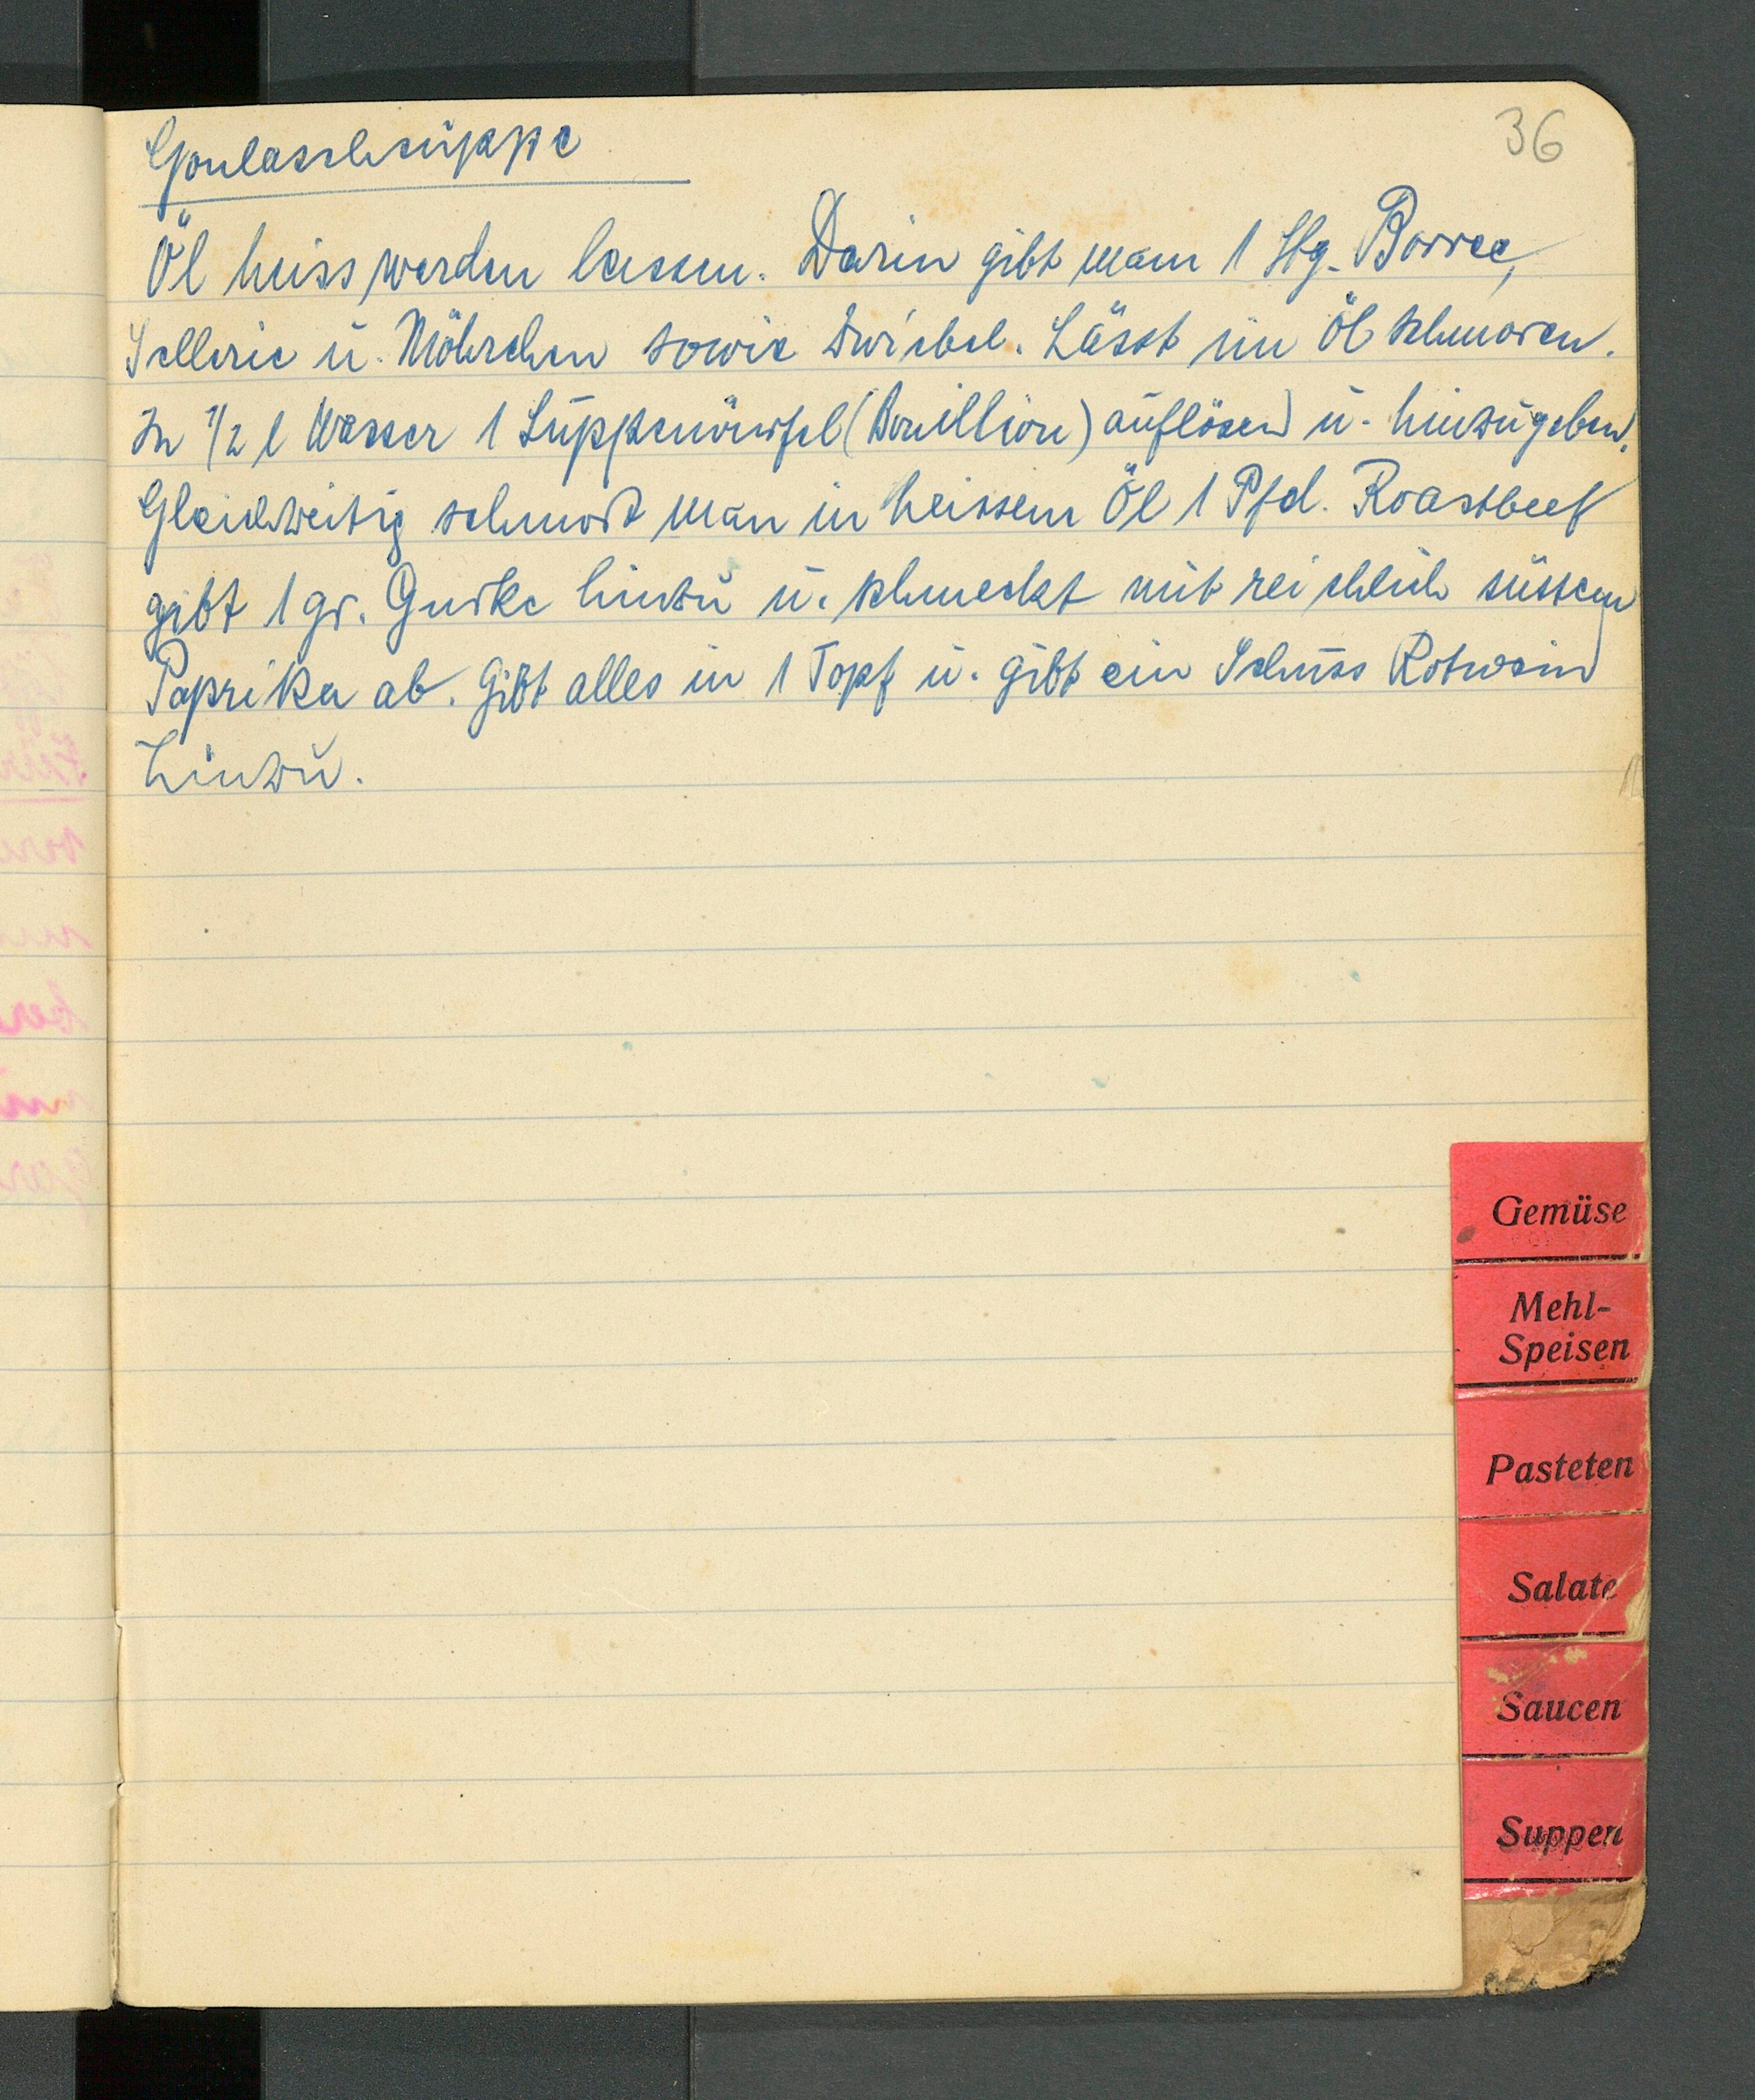 36
Goulaschsuppe
Öl heiss werden lassen. Darin gibt man 1 Stg. Borree,
Sellerie u. Möhrchen sowie Zwiebel. Lässt im Öl schmoren.
In 1/2 l Wasser 1 Suppenwürfel (Bouillion) auflösen u. hinzugeben.
Gleichzeitig schmort man in heissem Öl 1 Pfd. Roastbeef
gibt 1 gr. Gurke hinzu u. schmeckt mit reichlich süssem
Paprika ab. Gibt alles in 1 Topf u. gibt ein Schuss Rotwein
hinzu.
Gemüse
Mehl-
Speisen
Pasteten
Salate
Saucen
Suppen